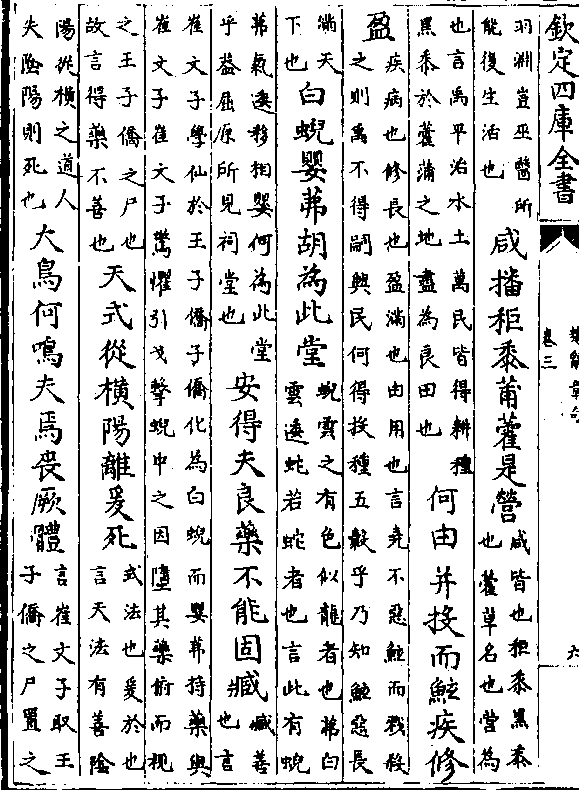 欽定四庫全書
楚辭章句
卷三
羽淵豈巫醫所
能復生活也
咸播秬黍莆藿是營
咸皆也秬黍黑黍
也藿草名也營為
也言禹平治水土萬民皆得耕種
黑黍於藿蒲之地盡為良田也
何由并投而鮌疾修
盈
疾病也修長也盈滿也由用也言堯不惡鮌而戮殺
之則禹不得嗣興民何得投種五穀乎乃知鮌惡長
滿天
下也
白蜺嬰茀胡為此堂
蜺雲之有色似龍者也茀白
雲逶蛇若蛇者也言此有蜺
茀氣逶移相嬰何為此堂
乎葢屈原所見祠堂也
安得夫良藥不能固臧
臧善
也言
崔文子學仙於王子僑子僑化為白蜺而嬰茀持藥與
崔文子崔文子驚懼引戈擊蜺中之因墮其藥俯而視
之王子僑之尸也
故言得藥不善也
天式從橫陽離爰死
式法也爰於也
言天法有善陰
陽從橫之道人
失陰陽則死也
大鳥何鳴夫焉喪厥體
言崔文子取王
子僑之尸置之